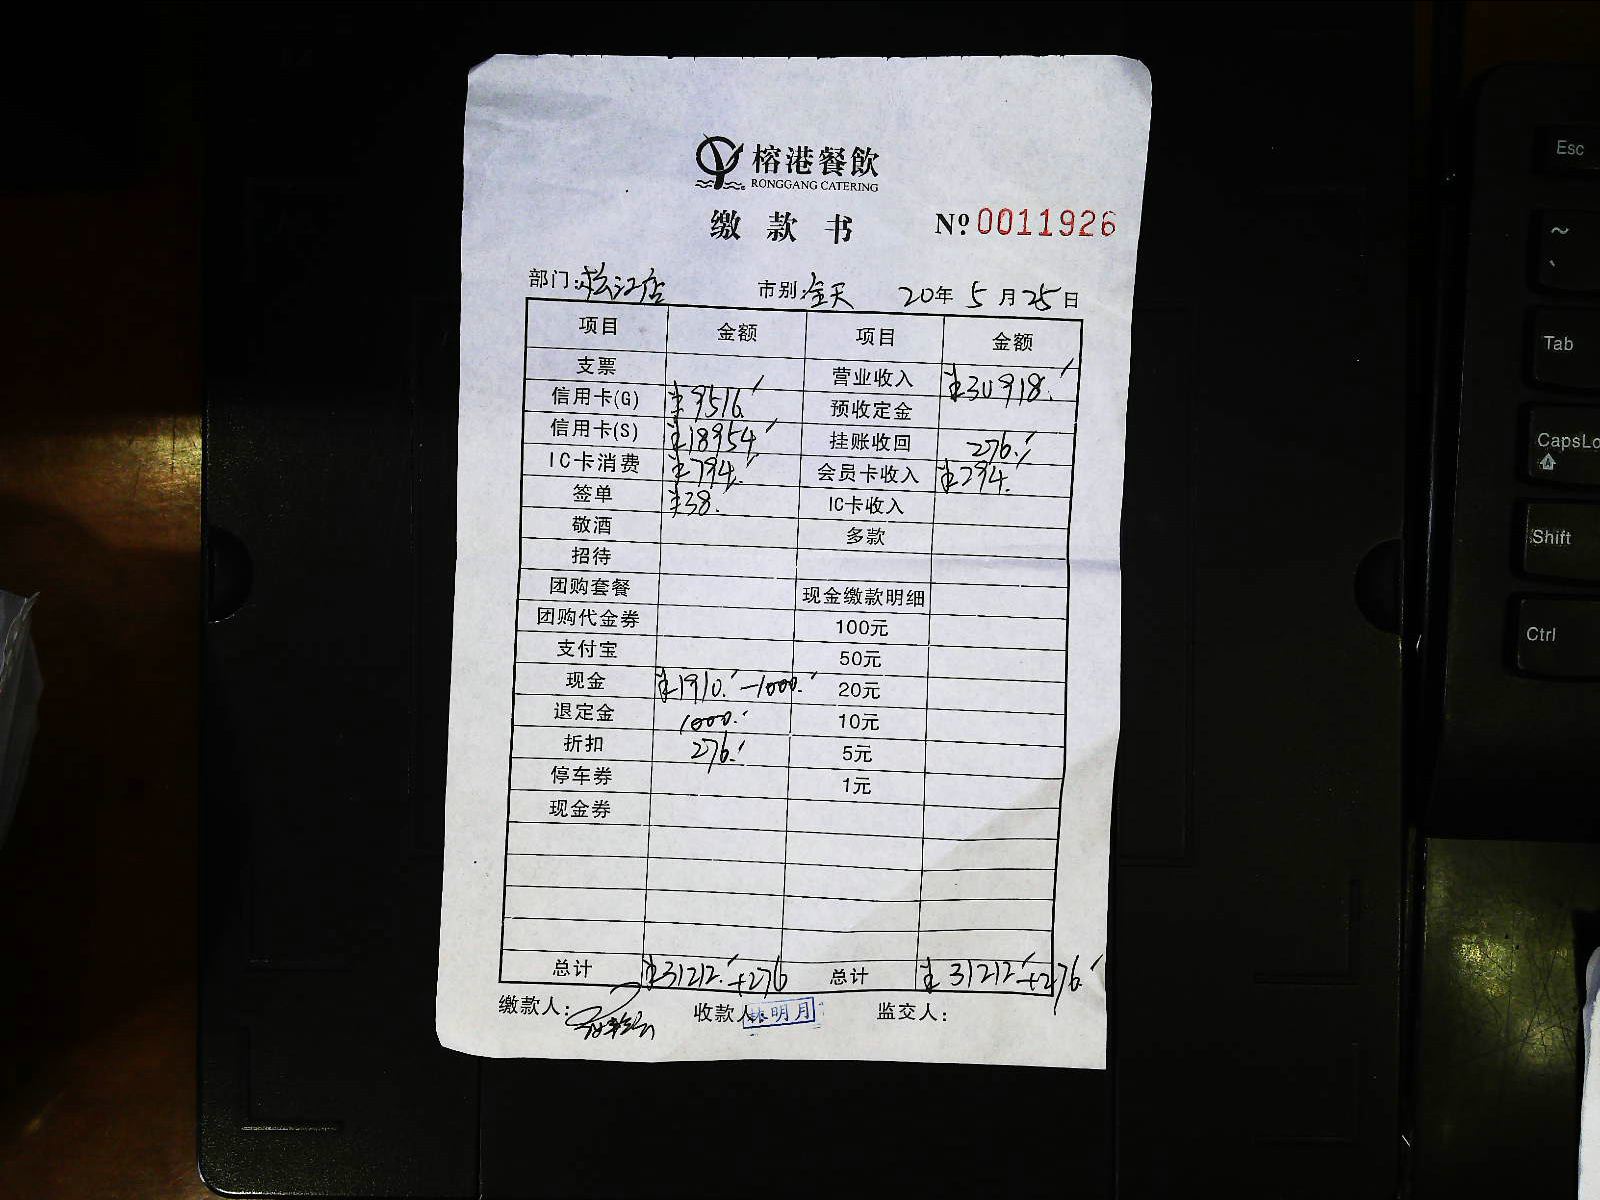 榕港餐飲
RONGGANG CATERING
缴款书 Nº 0011926
部门:松江店 市别:全天 20年5月25日
项目 金额 项目 金额
支票 营业收入 ¥30918.
信用卡(G) ¥9516. 预收定金
信用卡(S) ¥18954 挂账收回 276.
IC卡消费 ¥794. 会员卡收入 ¥294.
签单 ¥38. IC卡收入
敬酒 多款
招待
团购套餐 现金缴款明细
团购代金券 100元
支付宝 50元
现金 ¥1910.-1000. 20元
退定金 1000. 10元
折扣 276. 5元
停车券 1元
现金券
总计 ¥31212.+276 总计 ¥31212.+276.
缴款人: 收款人: 林明月 监交人:
Esc
~
`
Tab
CapsLo
Shift
Ctrl